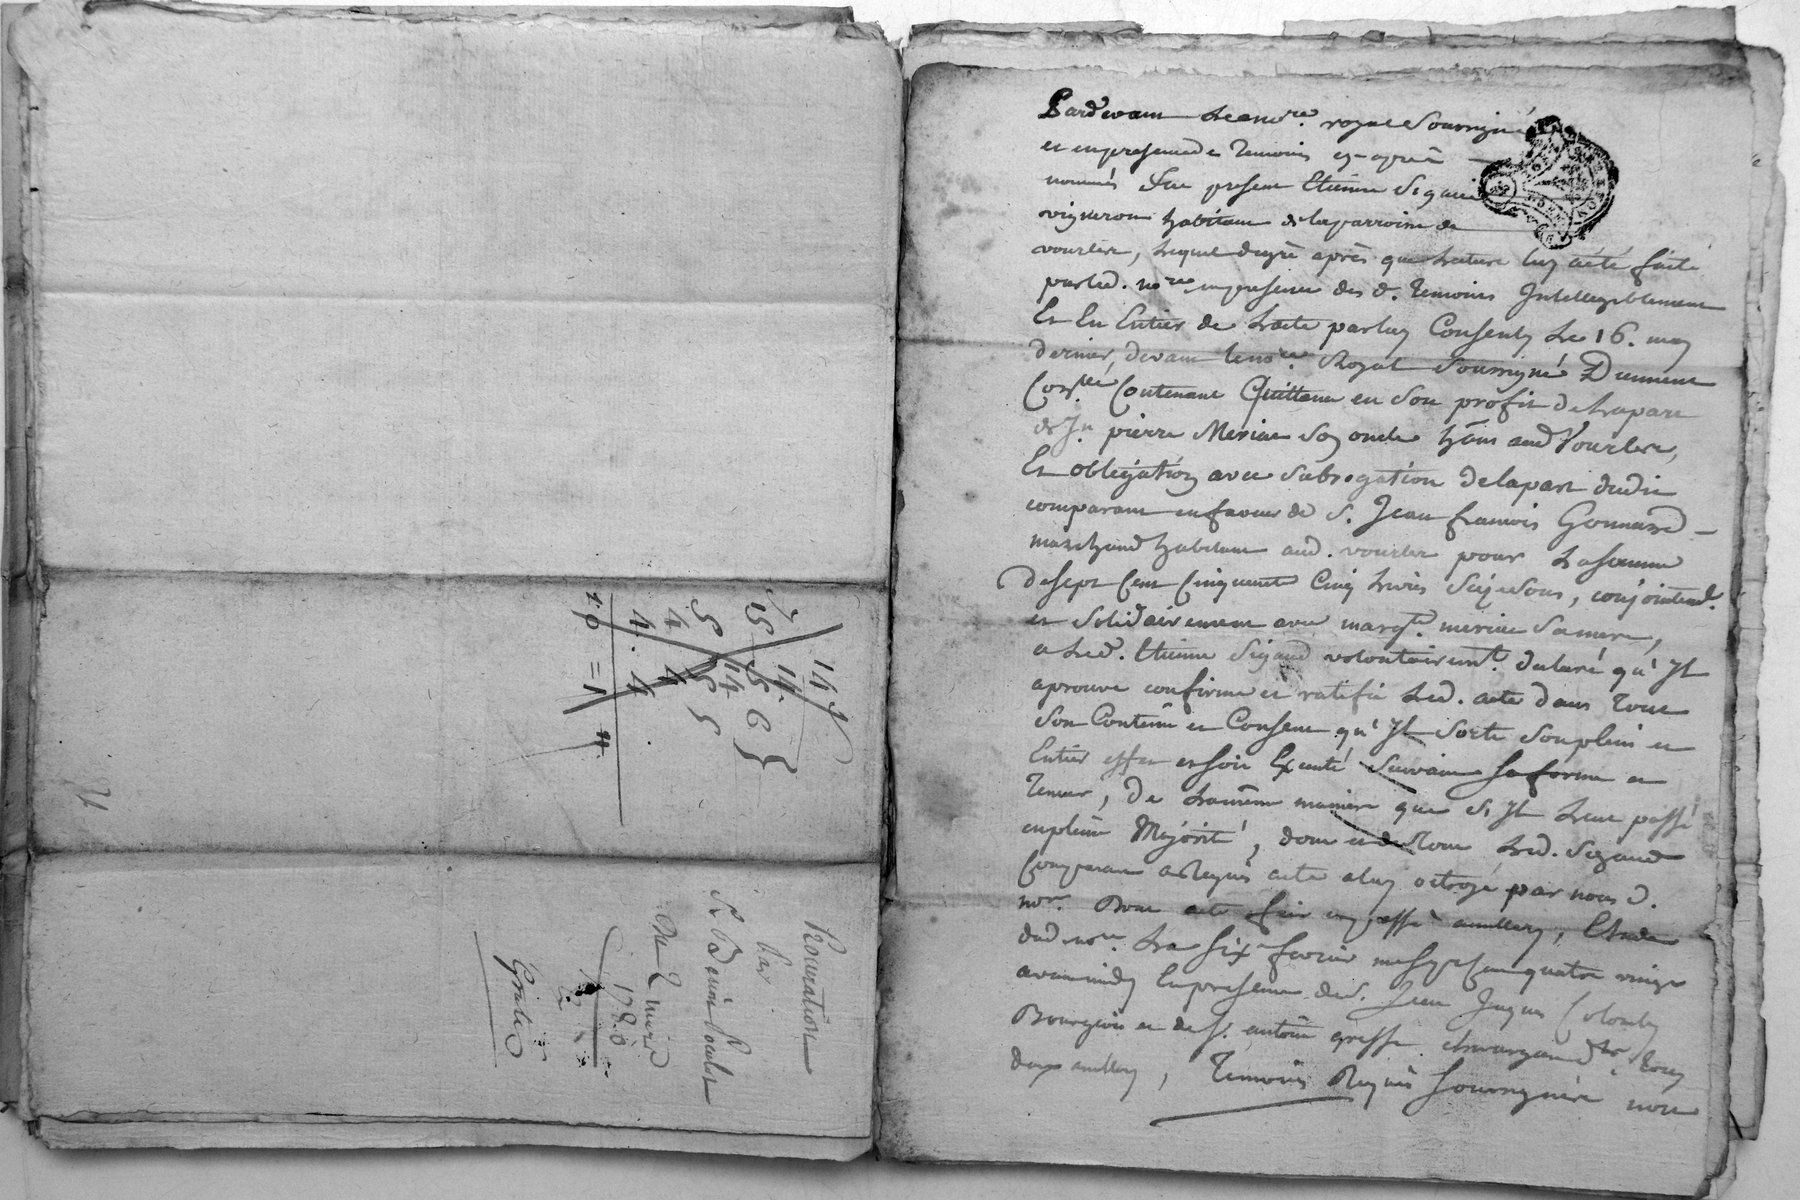 Procuration
Par
Sr
Du 2
1780
Gratis
14
15
14 5
4
4. 4
Pardevant le no.re royal soussigné
et en presence de temoins cy-apres
nommés fut present Etienne Sigaud
vigneron habitant de la parroisse de
vourles, lequel de gré après que lecture luy a été faite
par led. no.re en presence des d. temoins Intellegiblement
Et En Entier de L'acte par luy Consenty Le 16. may
dernier, devant le no.re Royal soussigné Duement
Con.lé Contenant Quittance en son profit de La part
de Jn pierre Meriae son oncle ham aud Vourles,
Et obligation avec subrogation de la part dudit
comparant en faveur de S. Jean francois Gonnard
marchand habitant aud. vourles pour La somme
de sept Cent Cinquante Cinq Livres seize sous, conjointemt.
et solidairement avec marg.te meriae sa mere,
a Led. Etienne Sigaud volontairemt. declaré qu'Il
aprouve confirme et ratifie Led. acte dans tout
son Contenu et Consent qu'Il sorte son plein et
Entier effet et soit Executé suivant sa forme et
teneur, de La même maniere que si Il L'eut passé
en pleine Majorité, dont et du tout Led. Sigaud
Comparant a Requis acte a luy octroyé par nous d.
nore. Dont acte fait et passé a millery, Etude
dud no.re Le six fevrier mil sept Cent quatre vingt
avant midy En presence de S. Jean Jaques Colomby
Bourgeois et de Sr. antoine gresse chirurgien tous
deux a millery, temoins Requis soussignés non